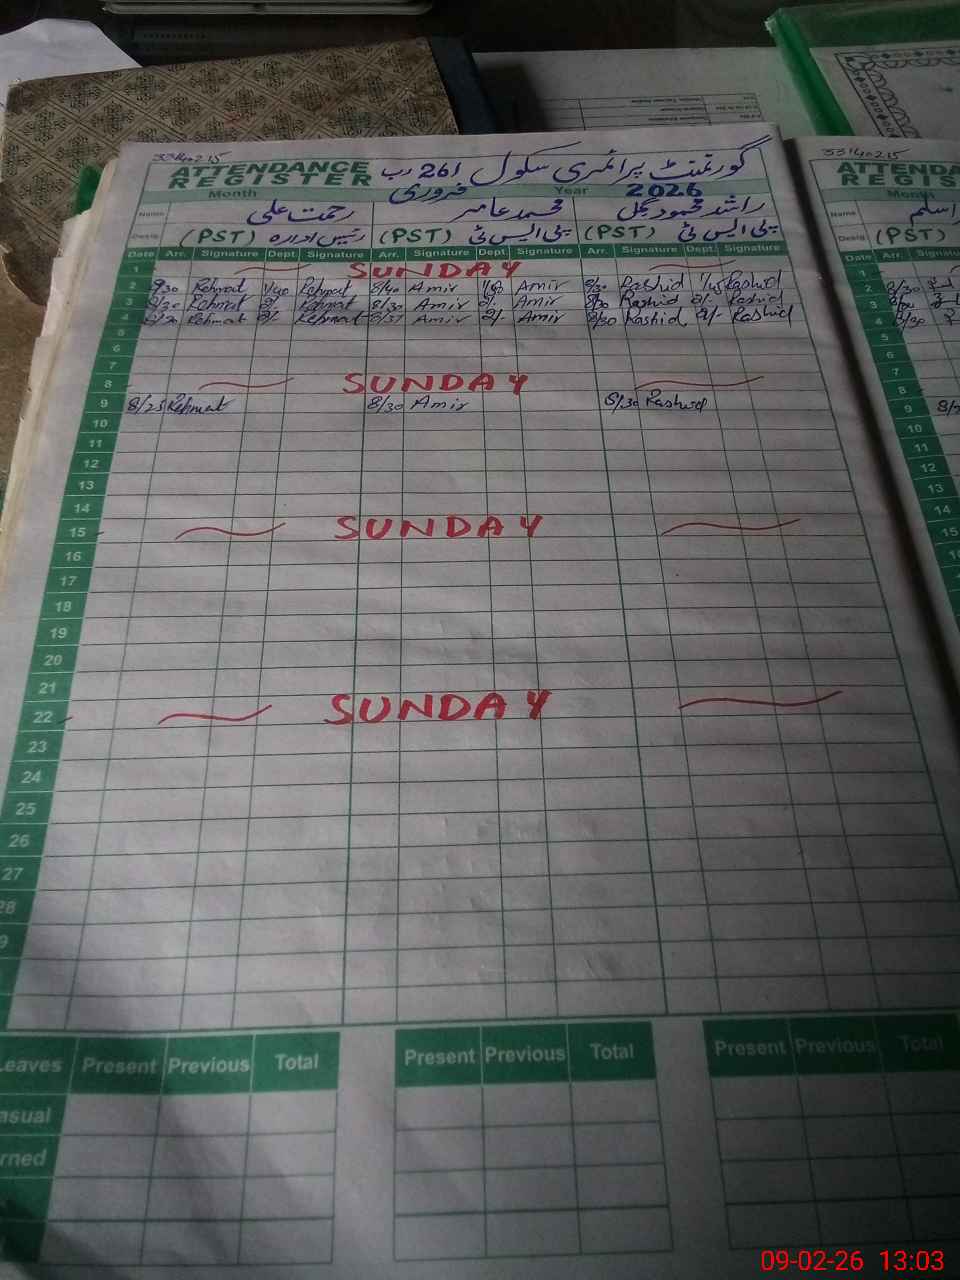 33140215
ATTENDANCE REGISTER گورنمنٹ پرائمری سکول 261 رب
Month فروری Year 2026
Name رحمت علی محمد عامر راشد محمود گل
Desig (PST) رئیس ادارہ (PST) پی ایس ٹی (PST) پی ایس ٹی
Date Arr. Signature Dept. Signature Arr. Signature Dept. Signature Arr. Signature Dept. Signature
1 SUNDAY
2 Rehmat 1/40 Rehmat 8/40 Amir Amir 8/30 Rashid Rashid
3 8/20 Rehmat 2/- Rehmat 8/30 Amir 2/- Amir 8/30 Rashid 2/- Rashid
4 8/20 Rehmat 2/- Rehmat Amir 2/- Amir 8/30 Rashid 2/- Rashid
5
6
7
8 SUNDAY
9 8/25 Rehmat 8/30 Amir 8/30 Rashid
10
11
12
13
14
15 SUNDAY
16
17
18
19
20
21
22 SUNDAY
23
24
25
26
27
28
9
Leaves Present Previous Total Present Previous Total Present Previous Total
asual
rned
33140215
ATTENDA
REGIS
Month
Name اسلم
Desig (PST)
Date Arr. Signatu
1
2 8/30
3
4 8/30
5
6
7
8
9
10
11
12
13
14
15
16
09-02-26 13:03